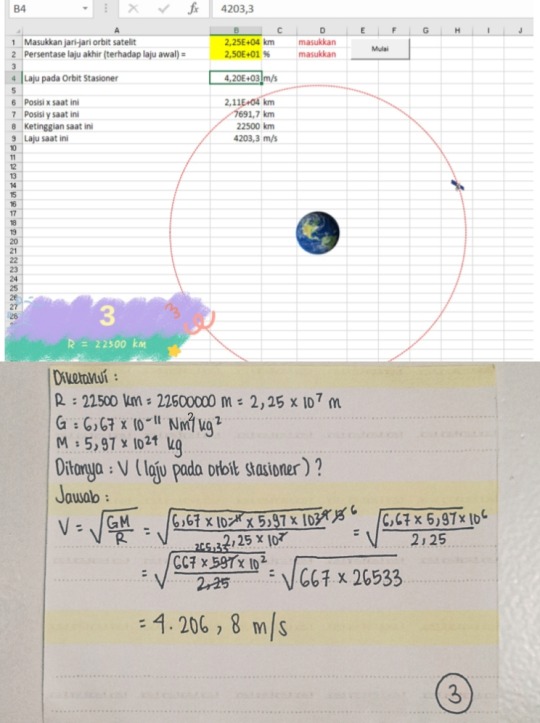 B4 fx 4203,3
A B C D E F G H I J
1 Masukkan jari-jari orbit satelit 2,25E+04 km masukkan
2 Persentase laju akhir (terhadap laju awal) = 2,50E+01 % masukkan
Mulai
3
4 Laju pada Orbit Stasioner 4,20E+03 m/s
5
6 Posisi x saat ini 2,11E+04 km
7 Posisi y saat ini 7691,7 km
8 Ketinggian saat ini 22500 km
9 Laju saat ini 4203,3 m/s
10
11
12
13
14
15
16
17
18
19
20
21
22
23
24
25
26
27
3
R = 22500 km
Diketahui :
R = 22500 km = 22500000 m = 2,25 × 10⁷ m
G = 6,67 × 10⁻¹¹ Nm²/kg²
M = 5,97 × 10²⁴ kg
Ditanya : V (laju pada orbit stasioner) ?
Jawab :
V = √(GM/R) = √(6,67 × 10⁻¹¹ × 5,97 × 10²⁴/2,25 × 10⁷) = √(6,67 × 5,97 × 10⁶/2,25)
= √(667 × 597 × 10²/2,25) = √667 × 26533
= 4.206,8 m/s
3